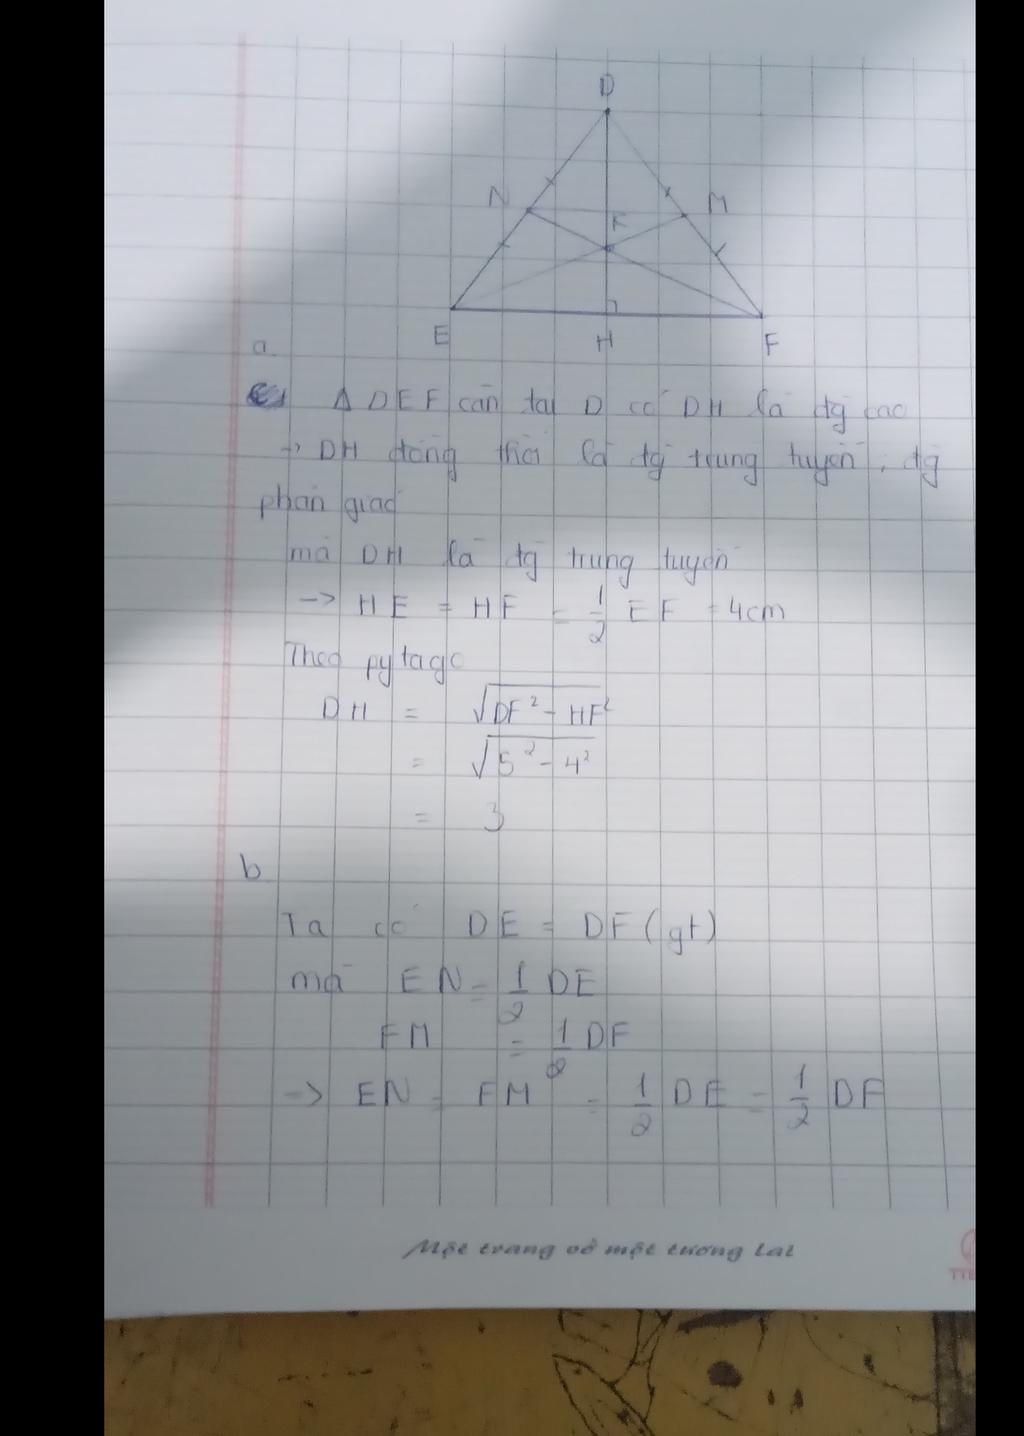 D
N
M
F
E
H
F
a
Δ DEF cân tại D có DH là đg cao
→ DH đồng thời là đg trung tuyến, đg
phân giác
mà DH là đg trung tuyến
→ HE = HF = 1/2 EF = 4cm
Theo pytago
DH = √DF² - HF²
= √5² - 4²
= 3
b
Ta có DE = DF (gt)
mà EN = 1/2 DE
FM = 1/2 DF
→ EN = FM = 1/2 DE = 1/2 DF
Một trang vở một tương lai